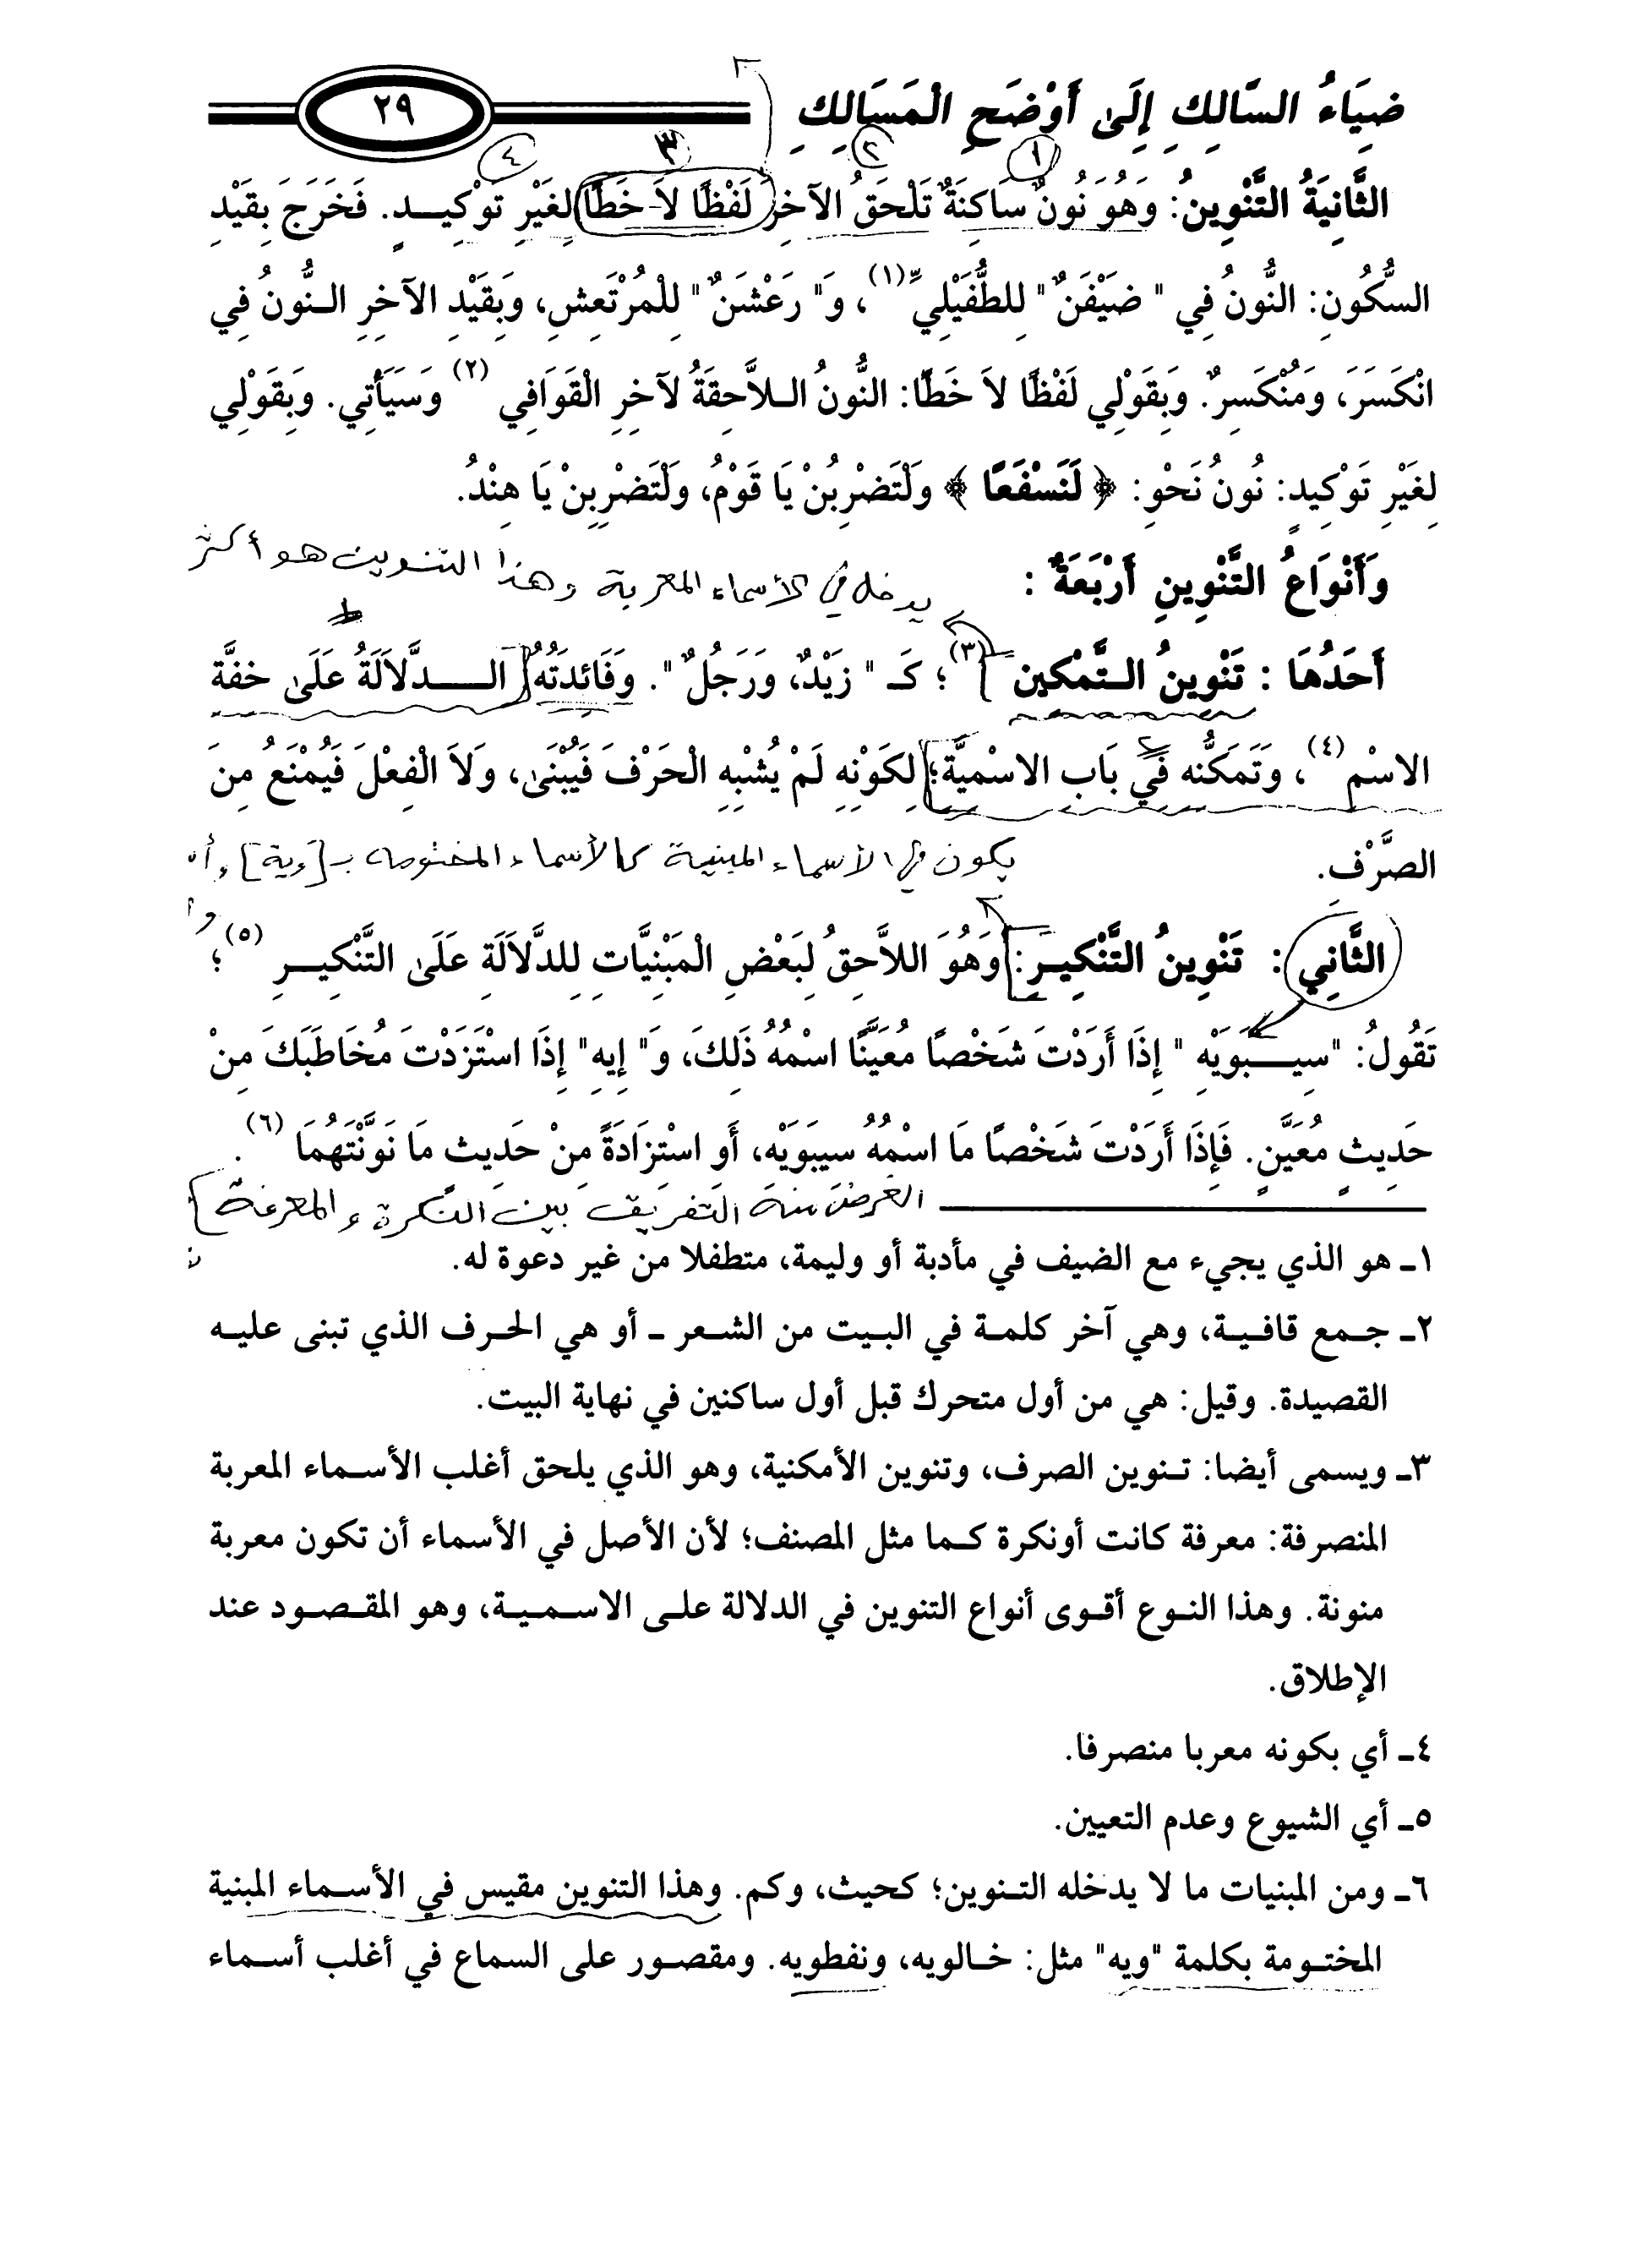 ضِيَاءُ السَّالِكِ إِلَى أَوْضَحِ الْمَسَالِكِ
٢٩
١ ٢ ٣ ٤
الثَّانِيَةُ التَّنْوِينُ: وَهُوَ نُونٌ سَاكِنَةٌ تَلْحَقُ الآخِرَ لَفْظًا لاَ خَطًّا لِغَيْرِ تَوْكِيـدٍ. فَخَرَجَ بِقَيْدِ
السُّكُونِ: النُّونُ فِي " ضَيْفَنٌ " لِلطُّفَيْلِيِّ (١)، وَ" رَعْشَنٌ " لِلْمُرْتَعِشِ، وَبِقَيْدِ الآخِرِ النُّونُ فِي
انْكَسَرَ، وَمُنْكَسِرٌ. وَبِقَوْلِي لَفْظًا لاَ خَطًّا: النُّونُ اللاَّحِقَةُ لآخِرِ الْقَوَافِي (٢) وَسَيَأْتِي. وَبِقَوْلِي
لِغَيْرِ تَوْكِيدٍ: نُونُ نَحْوِ: ﴿ لَنَسْفَعًا ﴾ وَلْتَضْرِبُنْ يَا قَوْمُ، وَلْتَضْرِبِنْ يَا هِنْدُ.
وَأَنْوَاعُ التَّنْوِينِ أَرْبَعَةٌ :
يدخل في الأسماء المعربة وهذا التنوين هو أكثر
أَحَدُهَا : تَنْوِينُ التَّمْكِينِ (٣)؛ كَـ " زَيْدٌ، وَرَجُلٌ ". وَفَائِدَتُهُ الـدَّلاَلَةُ عَلَى خِفَّةِ
الاسْمِ (٤)، وَتَمَكُّنِهِ فِي بَابِ الاسْمِيَّةِ؛ لِكَوْنِهِ لَمْ يُشْبِهِ الْحَرْفَ فَيُبْنَى، وَلاَ الْفِعْلَ فَيُمْنَعُ مِنَ
الصَّرْفِ.
يكون في الأسماء المبنية كالأسماء المختومة بـ [ويه]
الثَّانِي : تَنْوِينُ التَّنْكِيـرِ: وَهُوَ اللاَّحِقُ لِبَعْضِ الْمَبْنِيَّاتِ لِلدَّلاَلَةِ عَلَى التَّنْكِيـرِ (٥)؛
تَقُولُ: "سِيـبَوَيْهِ " إِذَا أَرَدْتَ شَخْصًا مُعَيَّنًا اسْمُهُ ذَلِكَ، وَ" إِيهِ" إِذَا اسْتَزَدْتَ مُخَاطَبَكَ مِنْ
حَدِيثٍ مُعَيَّنٍ. فَإِذَا أَرَدْتَ شَخْصًا مَا اسْمُهُ سِيبَوَيْهِ، أَو اسْتِزَادَةً مِنْ حَدِيثٍ مَا نَوَّنْتَهُمَا (٦).
الغرض منه التفريق بين النكرة والمعرفة
١ـ هو الذي يجيء مع الضيف في مأدبة أو وليمة، متطفلا من غير دعوة له.
٢ـ جمع قافية، وهي آخر كلمة في البيت من الشعر ـ أو هي الحرف الذي تبنى عليه
القصيدة. وقيل: هي من أول متحرك قبل أول ساكنين في نهاية البيت.
٣ـ ويسمى أيضا: تنوين الصرف، وتنوين الأمكنية، وهو الذي يلحق أغلب الأسماء المعربة
المنصرفة: معرفة كانت أونكرة كما مثل المصنف؛ لأن الأصل في الأسماء أن تكون معربة
منونة. وهذا النوع أقوى أنواع التنوين في الدلالة على الاسمية، وهو المقصود عند
الإطلاق.
٤ـ أي بكونه معربا منصرفا.
٥ـ أي الشيوع وعدم التعيين.
٦ـ ومن المبنيات ما لا يدخله التنوين؛ كحيث، وكم. وهذا التنوين مقيس في الأسماء المبنية
المختومة بكلمة "ويه" مثل: خالويه، ونفطويه. ومقصور على السماع في أغلب أسماء